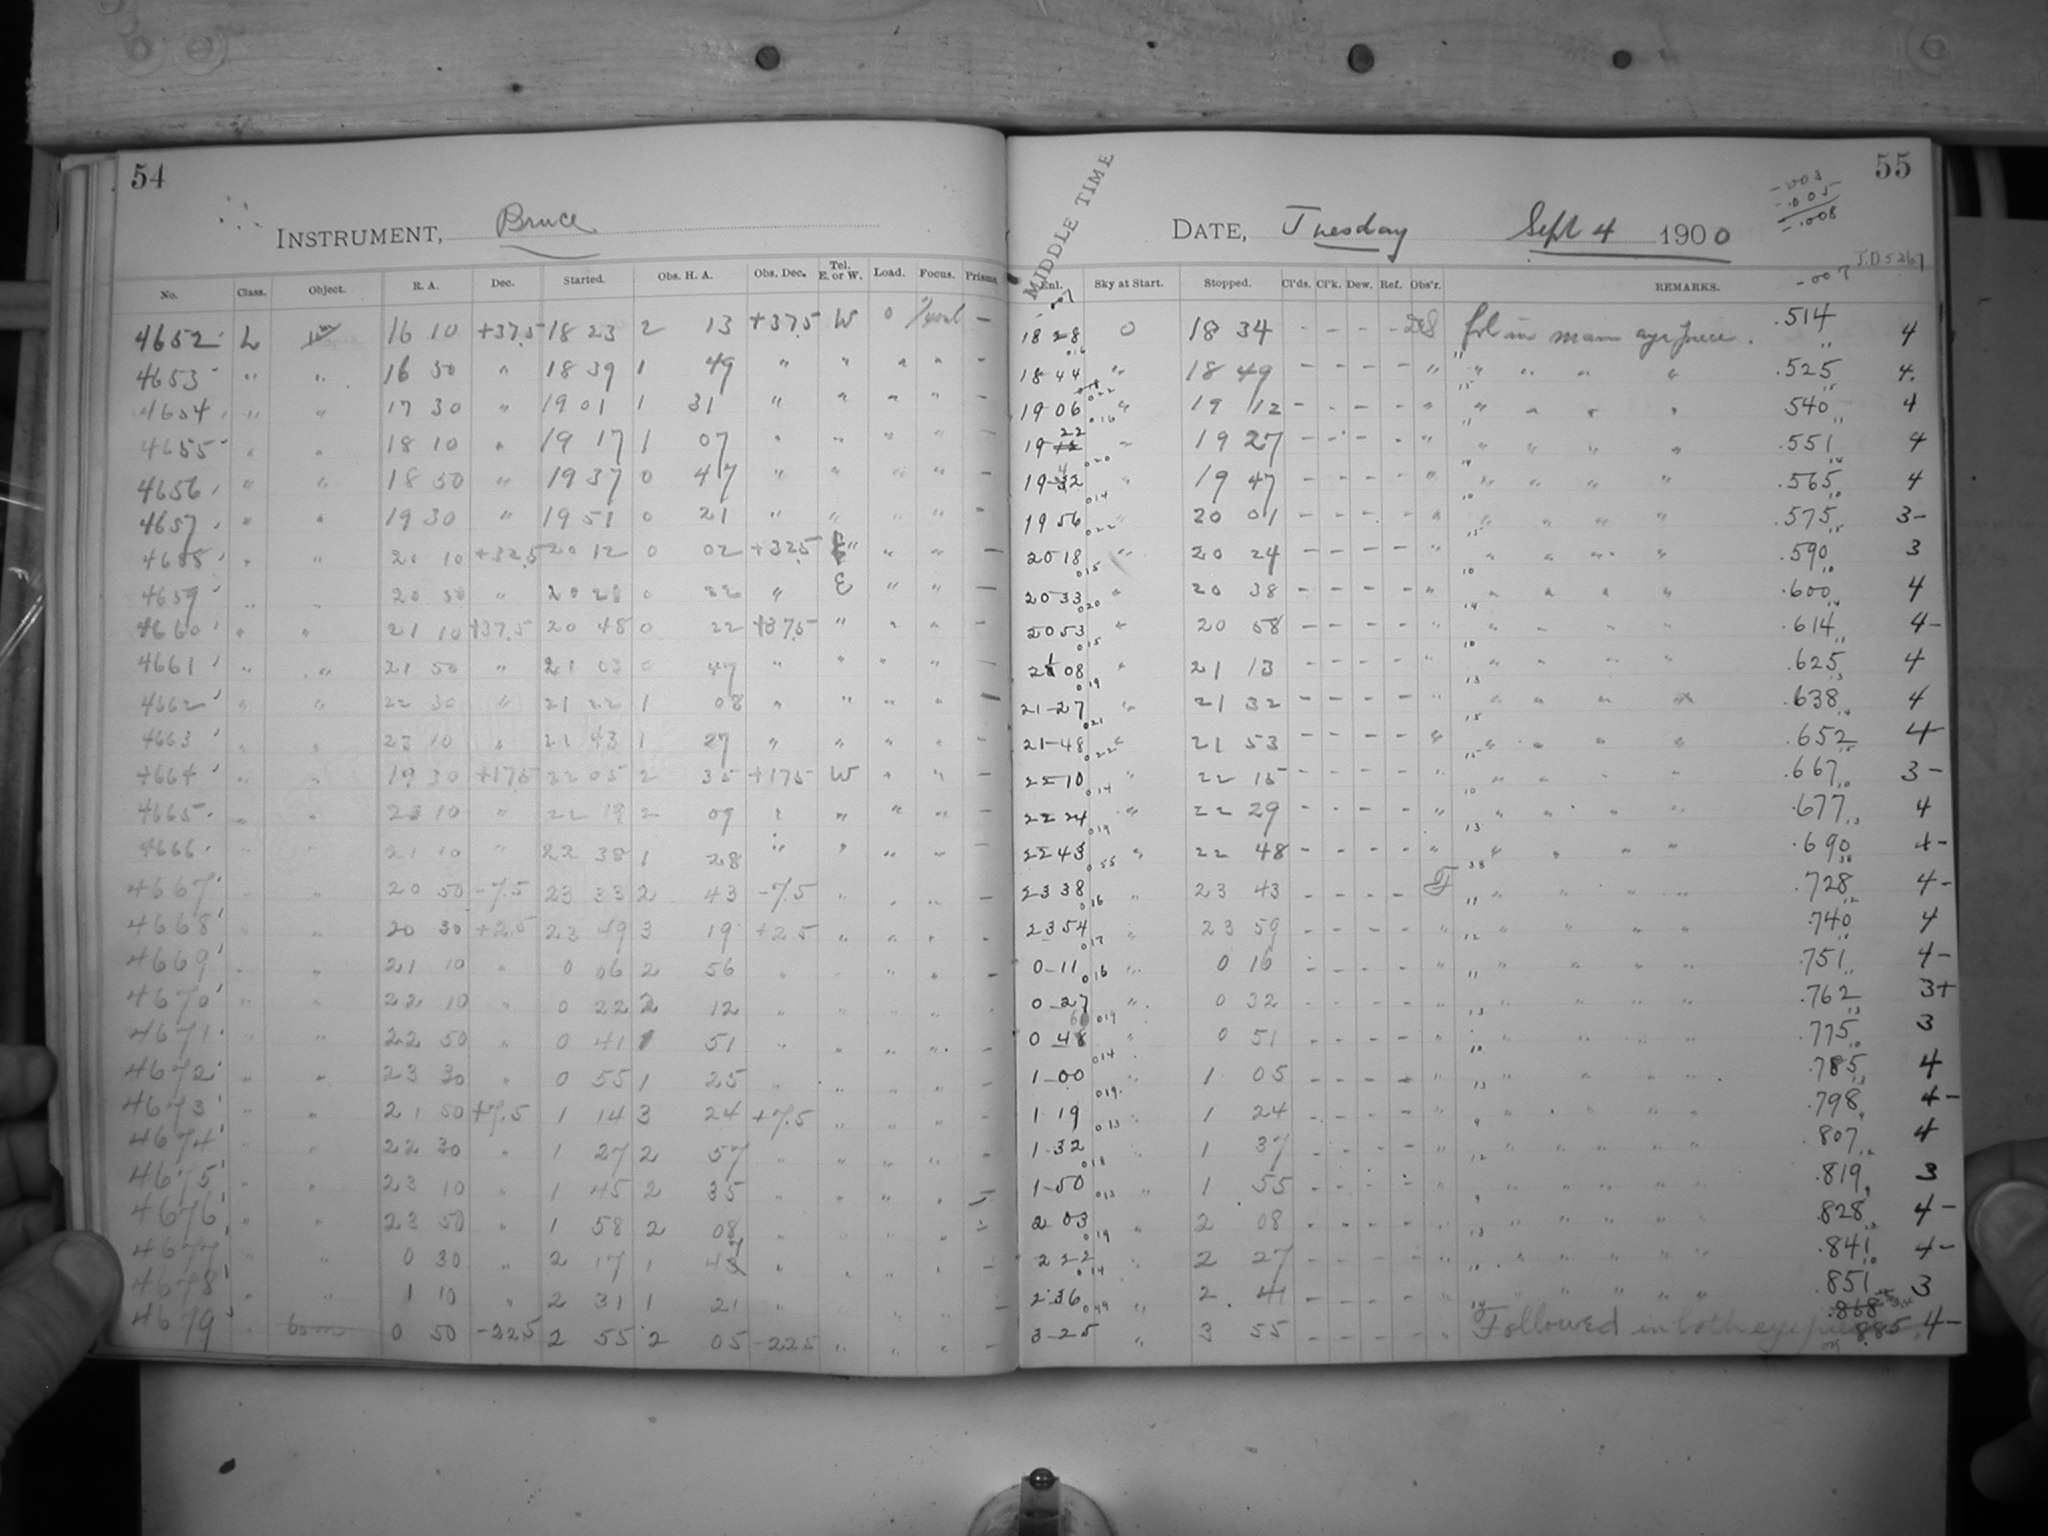 54
INSTRUMENT, Bruce
No. Class. Object. R. A. Dec. Started. Obs. H. A. Obs. Dec. Tel. E. or W. Load. Focus. Prisms.
4652 L 16 10 +37.5 18 23 2 13 +37.5 W 0 —
4653 " " 16 50 " 18 39 1 49 " " " " -
4654 " " 17 30 " 19 01 1 31 " " " " -
4655 " " 18 10 " 19 17 1 07 " " " " -
4656 " " 18 50 " 19 37 0 47 " " " " -
4657 " " 19 30 " 19 51 0 21 " " " " -
4658 " " 20 10 +32.5 20 12 0 02 +32.5 " " " -
4659 " " 20 50 " 20 28 0 22 " E " " -
4660 " " 21 10 +37.5 20 48 0 22 +37.5 " " " -
4661 " " 21 50 " 21 03 0 47 " " " " -
4662 " " 22 30 " 21 22 1 08 " " " " -
4663 " " 23 10 " 21 43 1 27 " " " " -
4664 " " 19 30 +17.5 22 05 2 35 +17.5 W " " -
4665 " " 20 10 " 22 19 2 09 " " " " -
4666 " " 21 10 " 22 38 1 28 " " " " -
4667 " " 20 50 -7.5 23 33 2 43 -7.5 " " " -
4668 " " 20 30 +2.5 23 49 3 19 +2.5 " " " -
4669 " " 21 10 " 0 06 2 56 " " " " -
4670 " " 22 10 " 0 22 2 12 " " " " -
4671 " " 22 50 " 0 41 1 51 " " " " -
4672 " " 23 30 " 0 55 1 25 " " " " -
4673 " " 21 50 +7.5 1 14 3 24 +7.5 " " " -
4674 " " 22 30 " 1 27 2 57 " " " " -
4675 " " 23 10 " 1 45 2 35 " " " " -
4676 " " 23 50 " 1 58 2 08 " " " " -
4677 " " 0 30 " 2 17 1 47 " " " " -
4678 " " 1 10 " 2 31 1 21 " " " " -
4679 " 60m 0 50 -22.5 2 55 2 05 -22.5 " " " -
55
MIDDLE TIME
DATE, Tuesday Sept 4 1900
-.003
-.005
-.008
J.D 5267
-007
Enl. Sky at Start. Stopped. Cl'ds. Cl'k. Dew. Ref. Obs'r. REMARKS.
007
18 28 0 18 34 - - - - fol in main eyepiece. .514 4
18 44 " 18 49 - - - - " " " " " .525 4.
19 06 " 19 12 - - - - " " " " " 540 4
19 22 " 19 27 - - - - " " " " " .551 4
19 42 " 19 47 - - - - " " " " " .565 4
19 56 " 20 01 - - - - " " " " " .575 3-
20 18 " 20 24 - - - - " " " " " .590 3
20 33 " 20 38 - - - - " " " " " .600 4
20 53 " 20 58 - - - - " " " " " .614 4-
21 08 " 21 13 - - - - " " " " " .625 4
21-27 " 21 32 - - - - " " " " " .638 4
21-48 " 21 53 - - - - " " " " " .652 4-
22 10 " 22 15 - - - - " " " " " .667 3-
22 24 " 22 29 - - - - " " " " " .677 4
22 43 " 22 48 - - - - " " " " " .690 4-
23 38 " 23 43 - - - - F " " " " .728 4-
23 54 " 23 59 - - - - " " " " " .740 4
0-11 " 0 16 - - - - " " " " " .751 4-
0-27 " 0 32 - - - - " " " " " .762 3+
0 46 " 0 51 - - - - " " " " " .775 3
1-00 " 1 05 - - - - " " " " " .785 4
1 19 " 1 24 - - - - " " " " " .798 4-
1-32 " 1 37 - - - - " " " " " .807 4
1-50 " 1 55 - - - - " " " " " .819 3
2 03 " 2 08 - - - - " " " " " .828 4-
2 22 " 2 27 - - - - " " " " " .841 4-
2 36 " 2 41 - - - - " " " " " .851 3
.868
3-25 " 3 55 - - - - " Followed in both eyepieces .885 4-